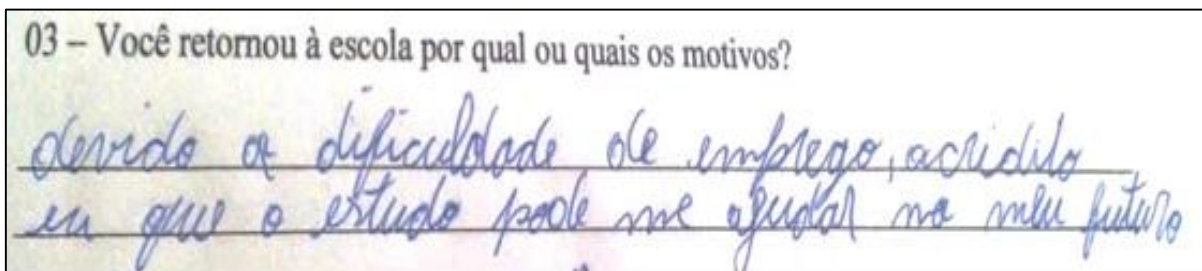 03 – Você retornou à escola por qual ou quais os motivos?
devido a dificuldade de emprego, acridito
eu que o estudo pode me ajudar no meu futuro